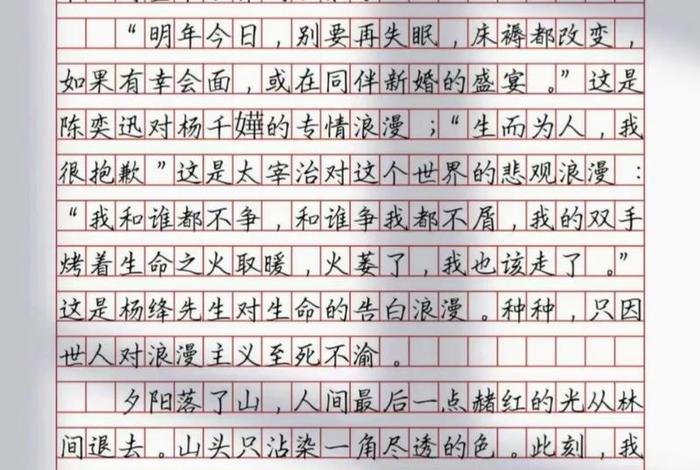 “明年今日，别要再失眠，床褥都改变，
如果有幸会面，或在同伴新婚的盛宴。”这是
陈奕迅对杨千嬅的专情浪漫；“生而为人，我
很抱歉”这是太宰治对这个世界的悲观浪漫：
“我和谁都不争，和谁争我都不屑，我的双手
烤着生命之火取暖，火萎了，我也该走了。”
这是杨绛先生对生命的告白浪漫。种种，只因
世人对浪漫主义至死不渝。
夕阳落了山，人间最后一点赭红的光从林
间退去。山头只沾染一角尽透的色。此刻，我